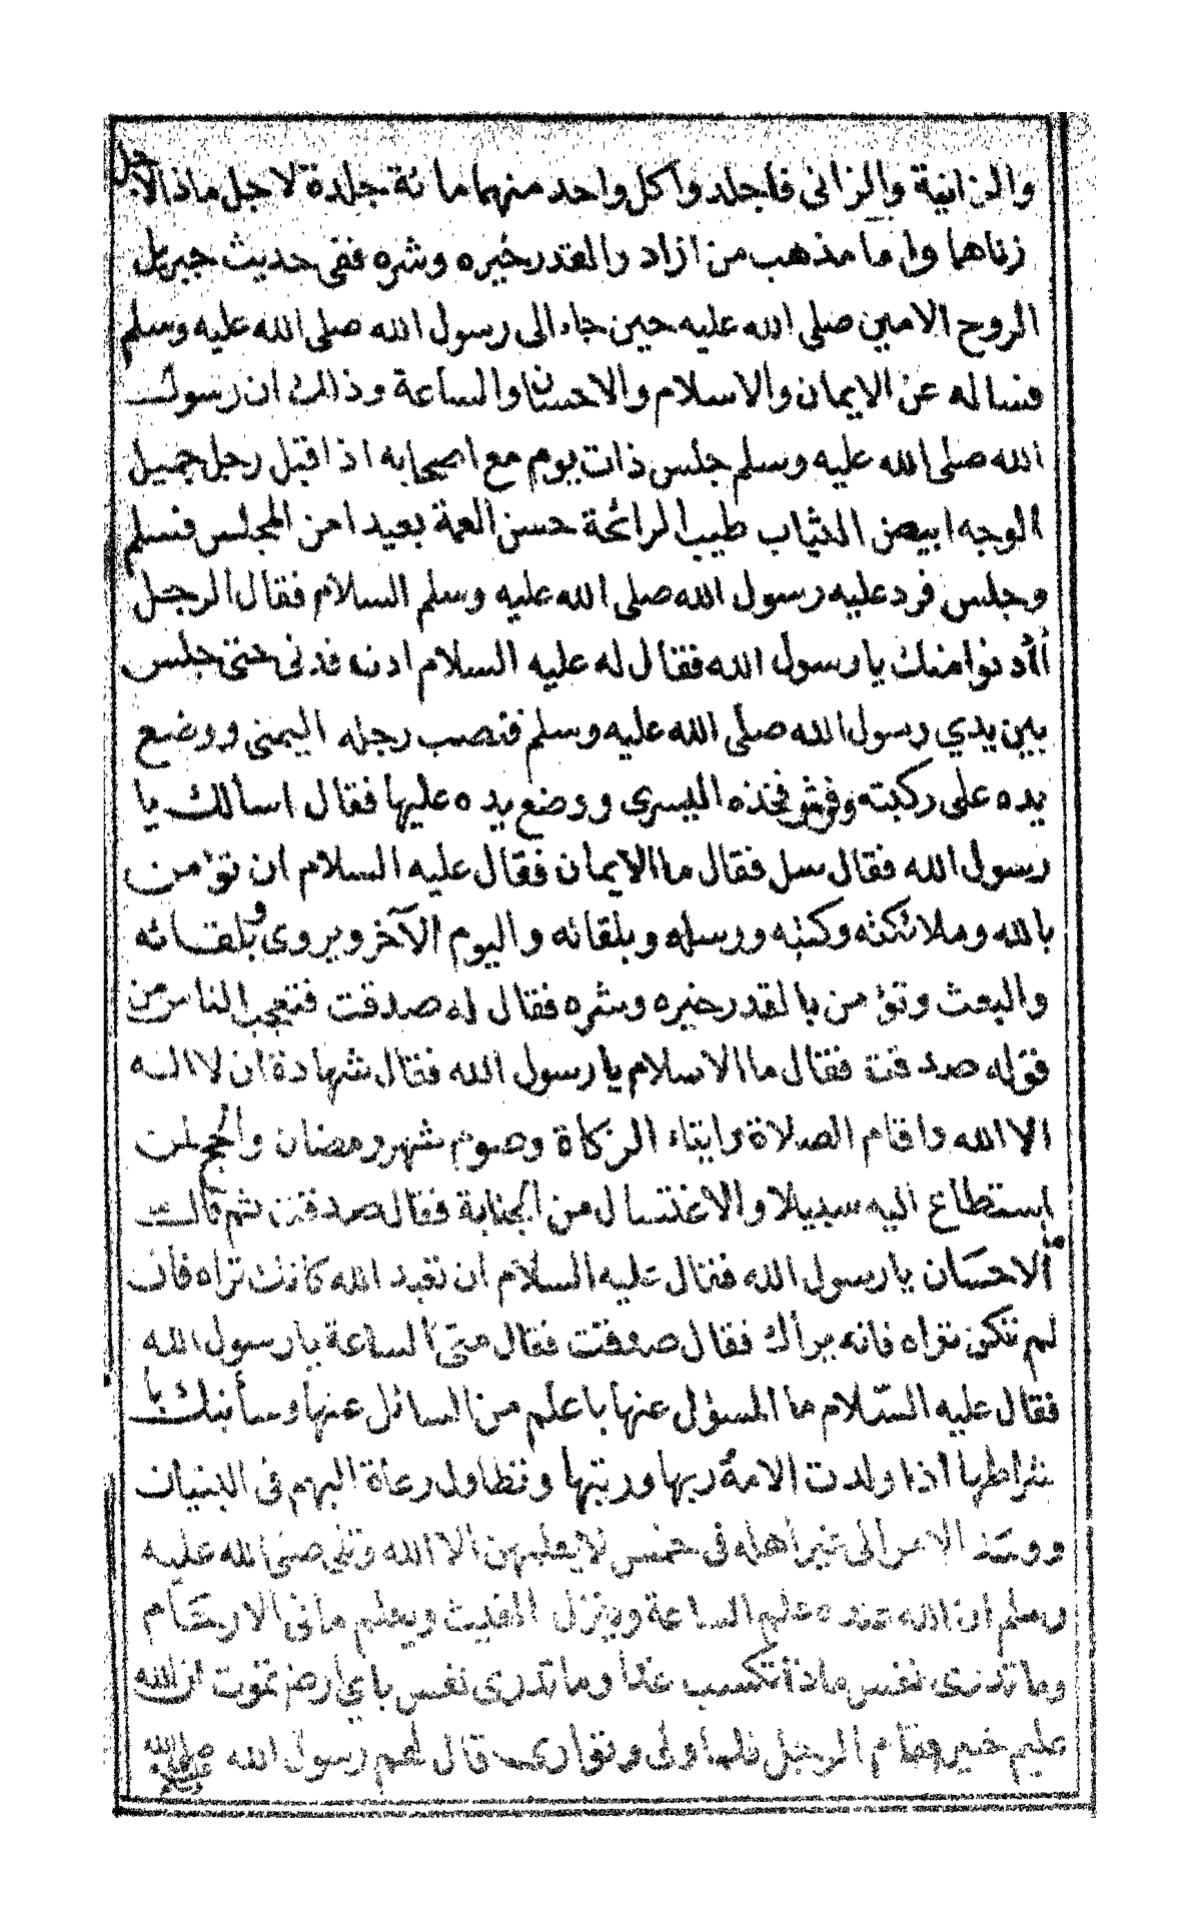 والزانية والزانى فاجلدوا كل واحد منهما مائة جلدة لاجل ماذا الا لاجل
زناهما واما مذهب من ازاد والقدر خيره وشره ففى حديث جبريل
الروح الامين صلى الله عليه حين جاء الى رسول الله صلى الله عليه وسلم
فساله عن الايمان والاسلام والاحسان والساعة وذالك ان رسول
الله صلى الله عليه وسلم جلس ذات يوم مع اصحابه اذا قبل رجل جميل
الوجه ابيض الثياب طيب الرائحة حسن العمة بعيدا من المجلس فسلم
وجلس فرد عليه رسول الله صلى الله عليه وسلم السلام فقال الرجل
أأدنوا منك يا رسول الله فقال له عليه السلام ادنه فدنى حتى جلس
بين يدي رسول الله صلى الله عليه وسلم فنصب رجله اليمنى ووضع
يده على ركبته وفرش فخذه اليسرى ووضع يده عليها فقال اسالك يا
رسول الله فقال سل فقال ما الايمان فقال عليه السلام ان تؤمن
بالله وملائكته وكتبه ورسله وبلقائه واليوم الآخر ويروى وبلقائه
والبعث وتؤمن بالقدر خيره وشره فقال له صدقت فتعجب الناس من
قوله صدقت فقال ما الاسلام يا رسول الله فقال شهادة ان لا اله
الا الله واقام الصلاة وايتاء الزكاة وصوم شهر رمضان والحج لمن
استطاع اليه سبيلا والاغتسال من الجنابة فقال صدقت ثم قال
ما الاحسان يا رسول الله فقال عليه السلام ان تعبد الله كانك تراه فان
لم تكن تراه فانه يراك فقال صدقت فقال متى الساعة يا رسول الله
فقال عليه السلام ما المسؤل عنها باعلم من السائل عنها وسأنبئك با
شراطها اذا ولدت الامة ربها وربتها وتطاول رعاة البهم فى البنيان
ووسد الامر الى غير اهله فى خمس لا يعلمهن الا الله وتلى صلى الله عليه
وسلم ان الله عنده علم الساعة وينزل الغيث ويعلم ما فى الارحام
وما تدرى نفس ماذا تكسب غدا وما تدرى نفس باي ارض تموت ان الله
عليم خبير فقام الرجل فلما ولى وتوارى قال لهم رسول الله صلى الله عليه وسلم